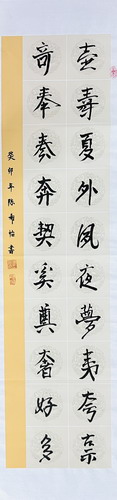 壺壽夏外夙夜夢夷夸
奇奉奏奔契奚奠奢好多
癸卯年陈怡書